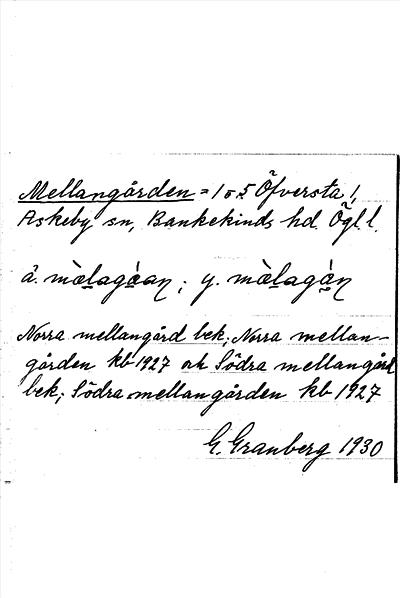 Mellangården = 1 o 5 Öfversta!,
Askeby sn, Bankekinds hd. Ögl. l.
ä. mæ̀lagȧan; y. mæ̀lagȧn
Norra mellangård bek; Norra mellan-
gården kb 1927 och Södra mellangård
bek; Södra mellangården kb 1927
G. Granberg 1930